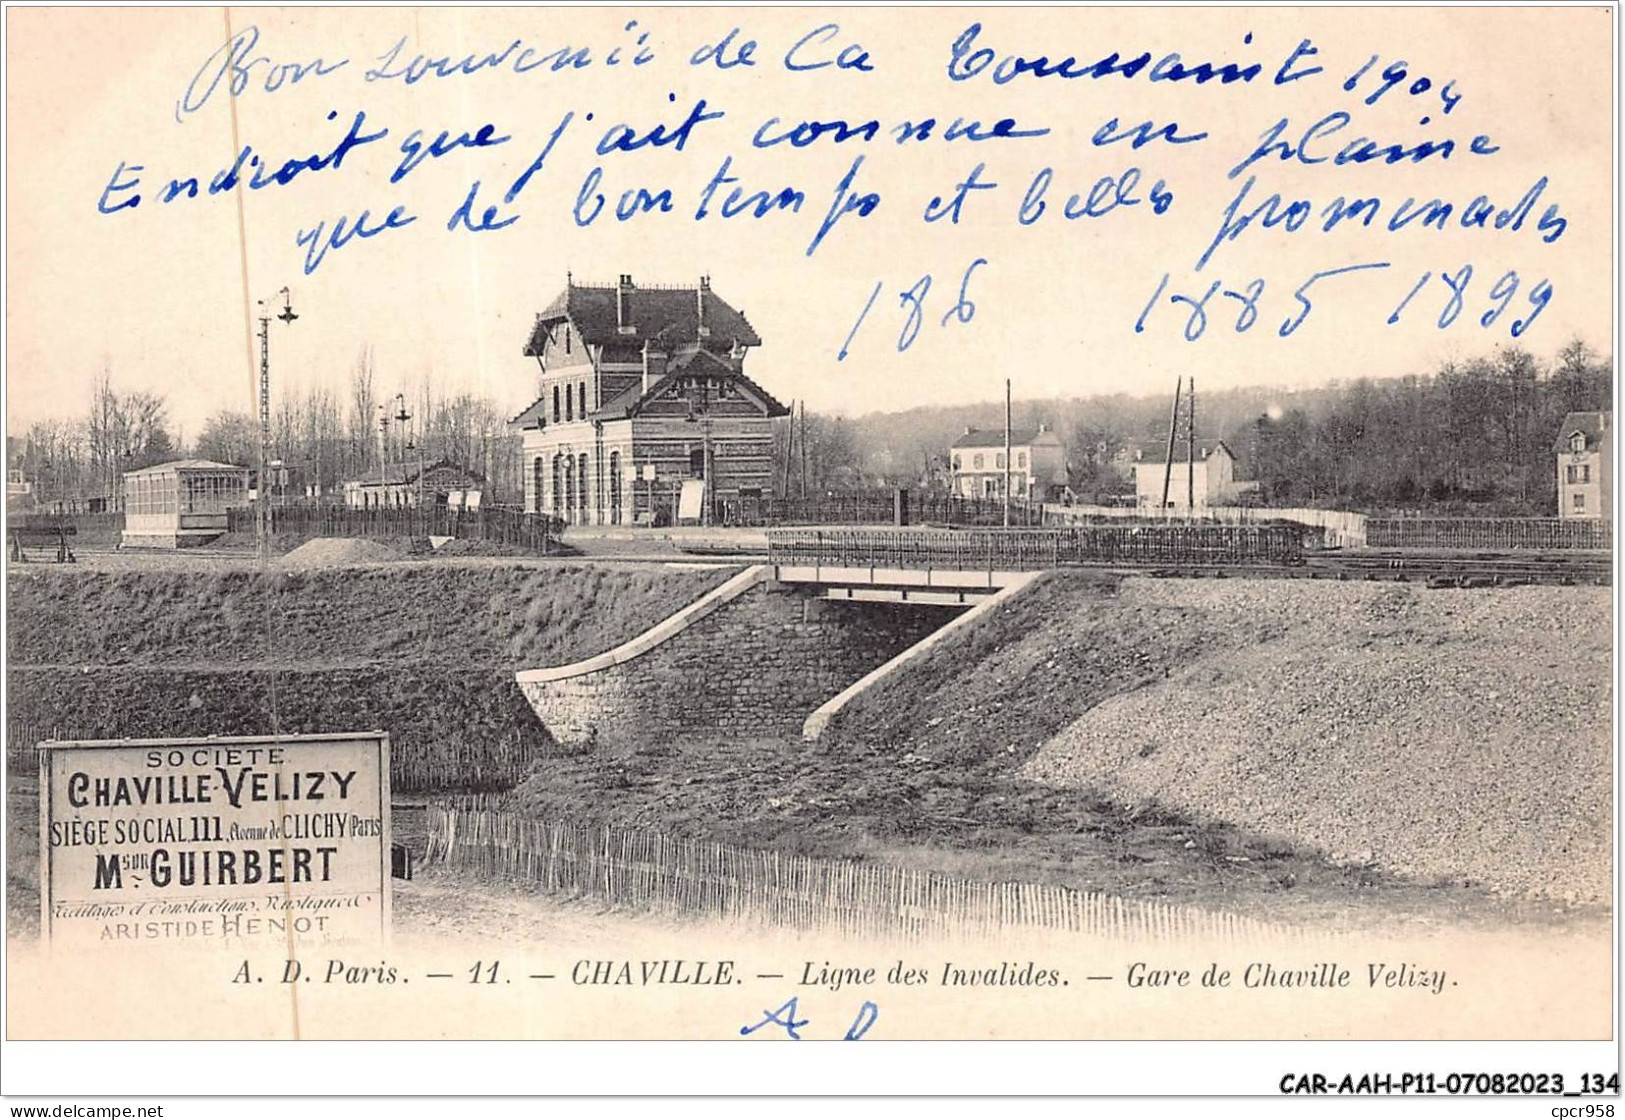 Bon souvenir de La Toussaint 1904
Endroit que j'ait connue en plaine
que de bon temps et belles promenades
186 1885 1899
SOCIÉTÉ
CHAVILLE-VELIZY
SIÈGE SOCIAL, 111, Avenue de CLICHY (Paris
Mson GUIRBERT
Treillages et Constructions Rustiques
ARISTIDE HENOT
A. D. Paris. — 11. — CHAVILLE. — Ligne des Invalides. — Gare de Chaville Velizy.
A D
CAR-AAH-P11-07082023_134
Delcampe.net
cpcr958